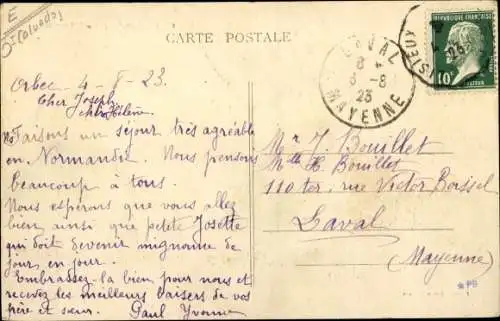 E
(Calvados)
CARTE POSTALE
Orbec - 4 - 8 - 23.
Cher Joseph
chère Hélène
Faisons un séjour très agréable
en Normandie. Nous pensons
beaucoup à tous.
Nous espérons que vous allez
bien ainsi que petite Josette
qui doit devenir mignonne de
jour en jour.
Embrassez-la bien pour nous et
recevez les meilleurs baisers de vos
père et sœur. Paul Yvonne
LAVAL
6-8
23
MAYENNE
REPUBLIQUE FRANÇAISE
10c
LISIEUX
Mr J. Bouillet
Mlle H. Bouillet
110 ter, rue Victor Boissel
Laval
(Mayenne)